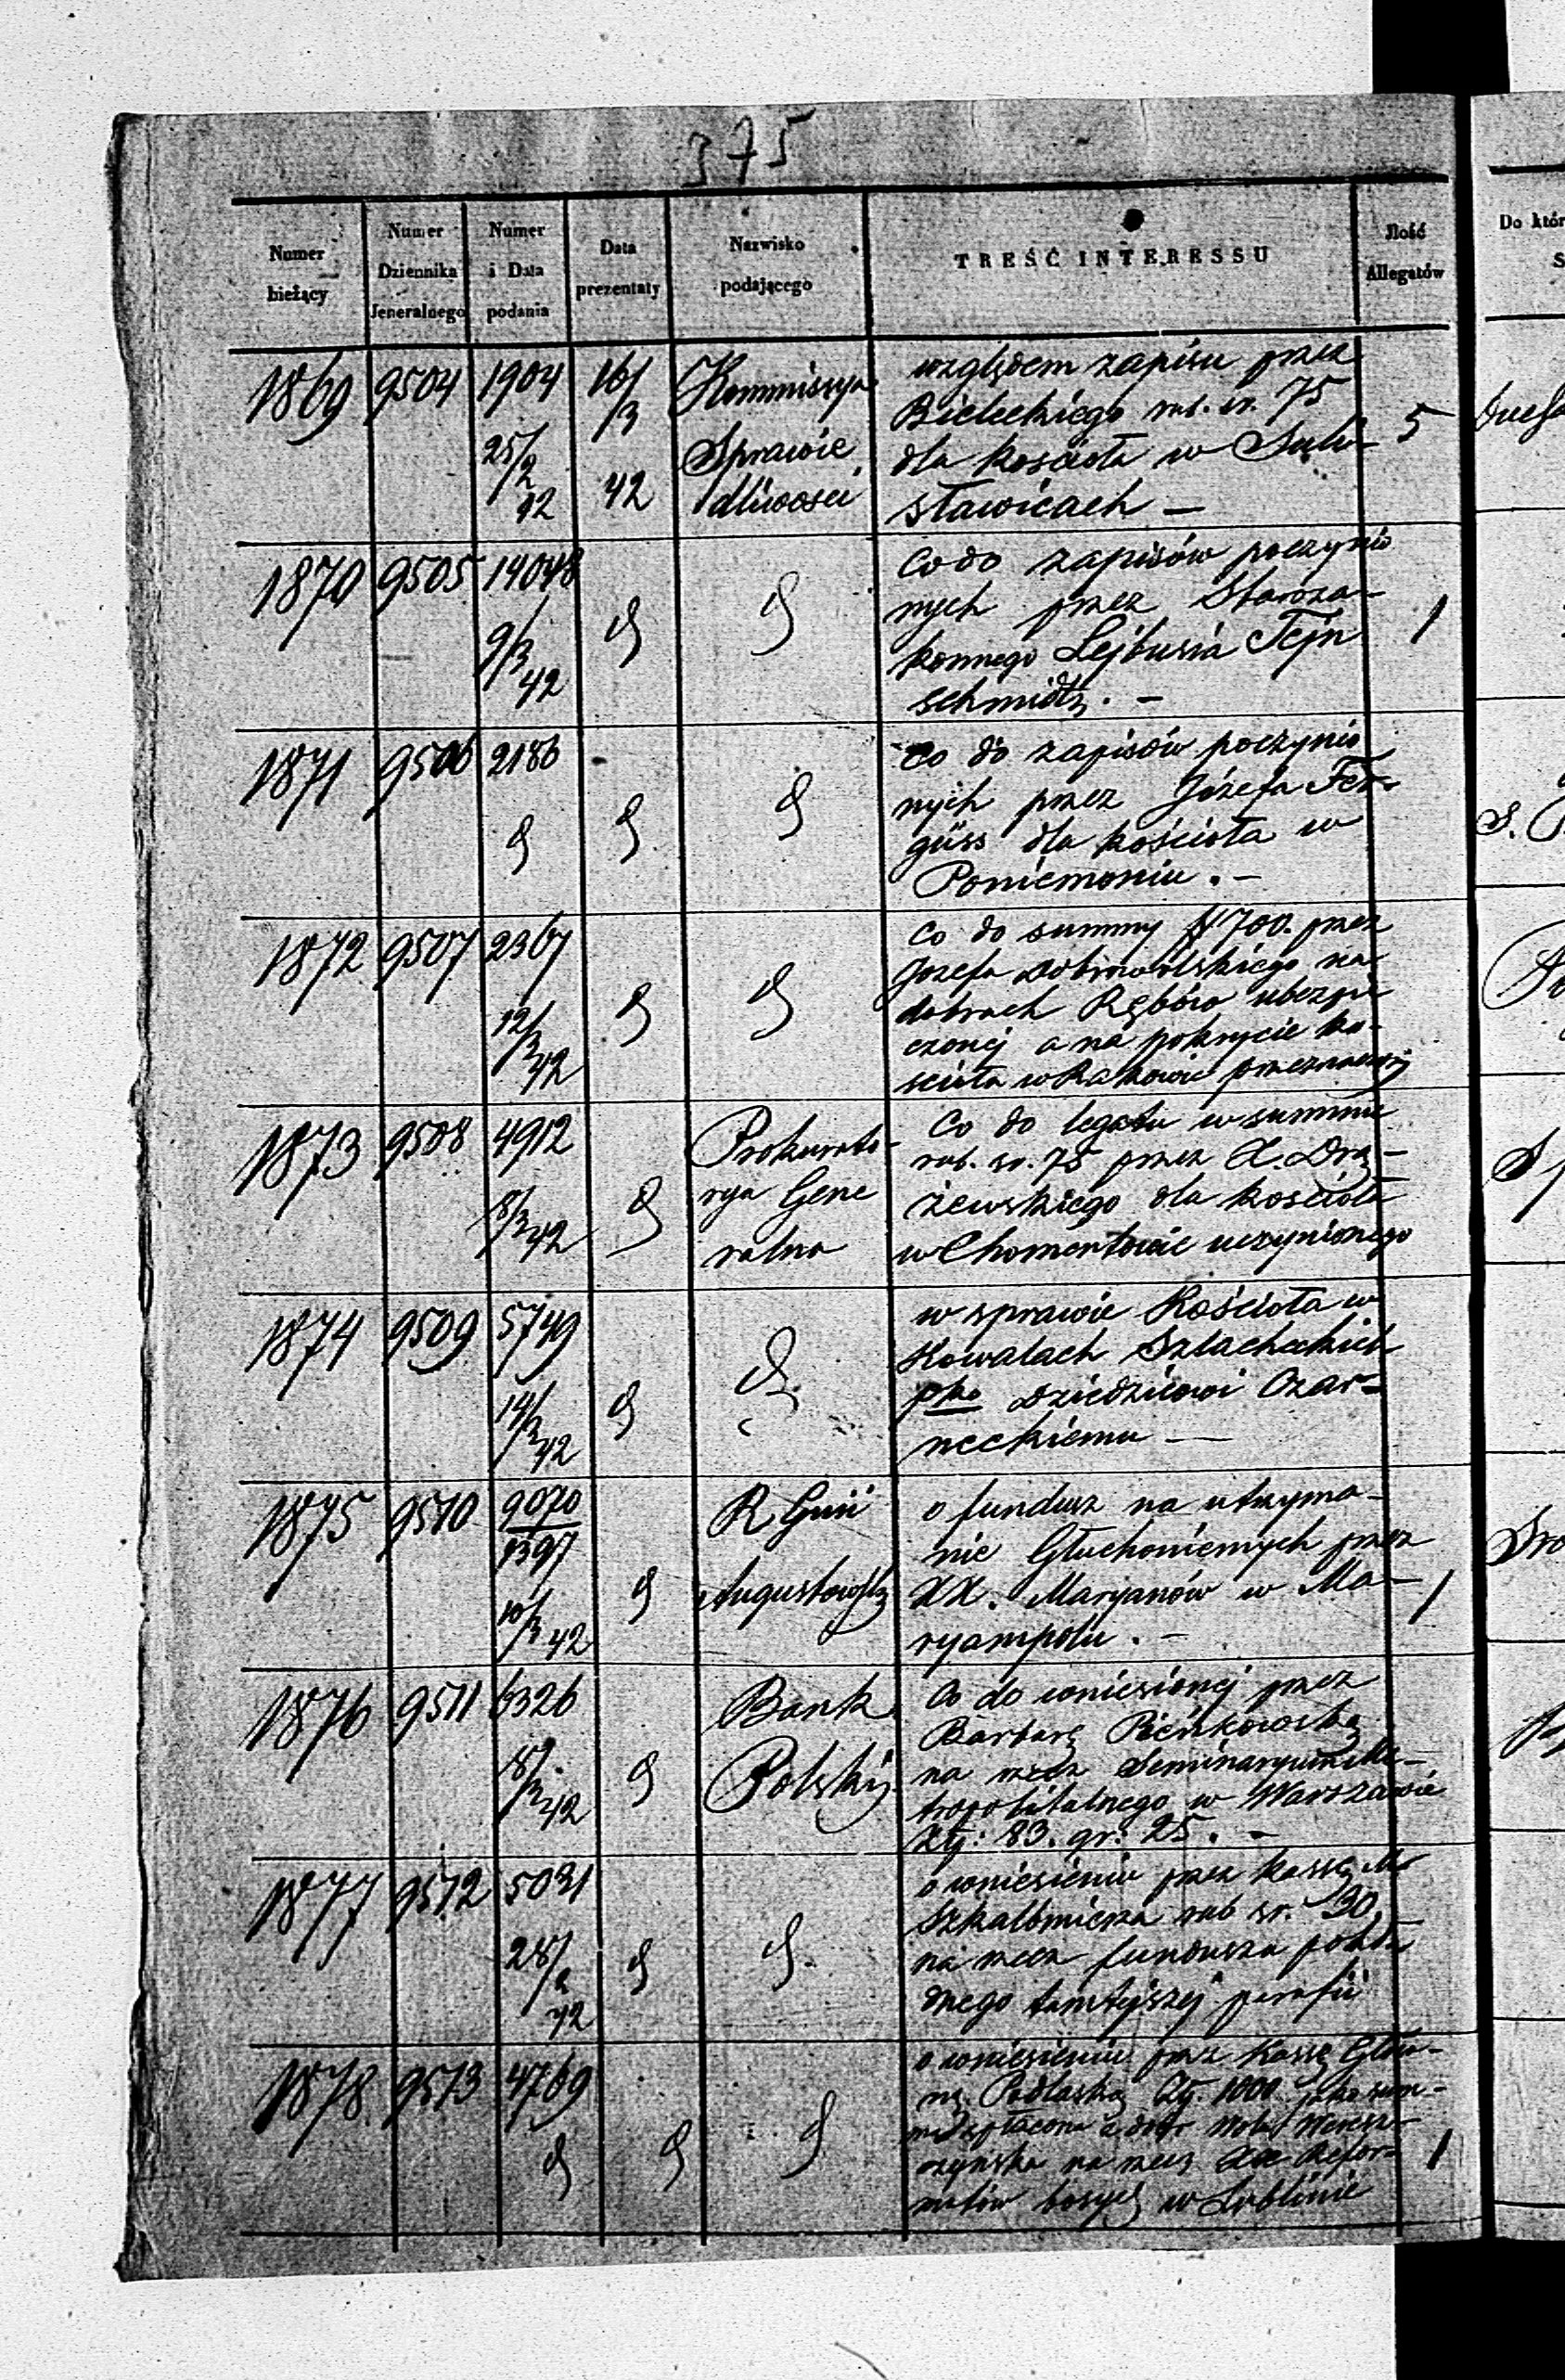 375
Numer bieżący
Numer Dziennika Jeneralnego
Numer i Data podania
Data prezentaty
Nazwisko podającego
TREŚĆ INTERESSU
Ilość Allegatów
Do któr
1869 9504 1904 25/2 42 16/3 42
Kommissya
Sprawie
dliwości
względem zapisu przez
Bieleckiego rub. sr. 75
dla kościoła w Suli-
sławicach —
5
1870 9505 14048 9/3 42 d d
Co do zapisów poczynio
nych przez Staroza-
konnego Lejbusia Fejn
schmidta. —
1
1871 9506 2186 d d d
Co do zapisów poczynio
nych przez Józefa Fer-
güss dla kościoła w
Poniemoniu. —
1872 9507 2367 12/3 42 d d
Co do summy fl 700. przez
Józefa Dobrowolskiego na
dobrach Rębów ubezpie
czonej a na pokrycie ko-
ścioła w Rakowie przeznaczonej
1873 9508 4912 8/3 42 d
Prokurato-
rya Gene
ralna
Co do legatu w summie
rub. sr. 75 przez X. Drą-
żewskiego dla kościoła
w Chomentowie uczynionego
1874 9509 5749 14/3 42 d d
w sprawie Kościoła w
Kowalach Szlacheckich
pko Dziedzicowi Czar-
neckiemu —
1875 9510 9070/1397 10/3 42 d
R Gun
Augustowski
o fundusz na utrzyma-
nie Głuchoniemych przez
XX. Maryanów w Ma-
ryampolu. —
1
1876 9511 6326 8/3 42 d
Bank
Polski
Co do wniesionej przez
Barbarę Pieńkowską
na rzecz Seminaryum Me-
tropolitalnego w Warszawie
Złp: 83. gr: 25. —
1877 9512 5031 28/2 42 d d
o wniesieniu przez kassę M.
Szkalbmierza rub sr. 30
na rzecz funduszu pokła
dnego tamtejszej parafii
1878 9513 4769 d d d
o wniesieniu przez Kassę Głów-
ną Podlaską Złp. 1000 jako sum-
ma spłacona z dóbr Wola Weresz-
czyńska na rzecz XX Refor-
matów bosych w Lublinie
1